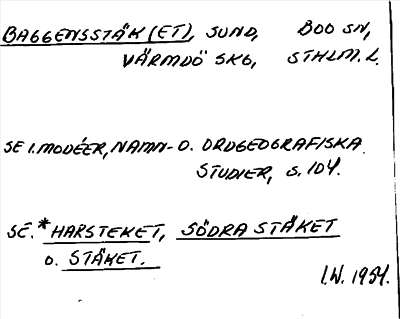 BAGGENSSTÄK(ET), SUND, BOO SN,
VÄRMDÖ SKG, STHLM. L.
SE I. MODÉER, NAMN- O. ORDGEOGRAFISKA
STUDIER, S. 104.
SE. *HARSTEKET, SÖDRA STÄKET
O. STÄKET.
I.W. 1954.